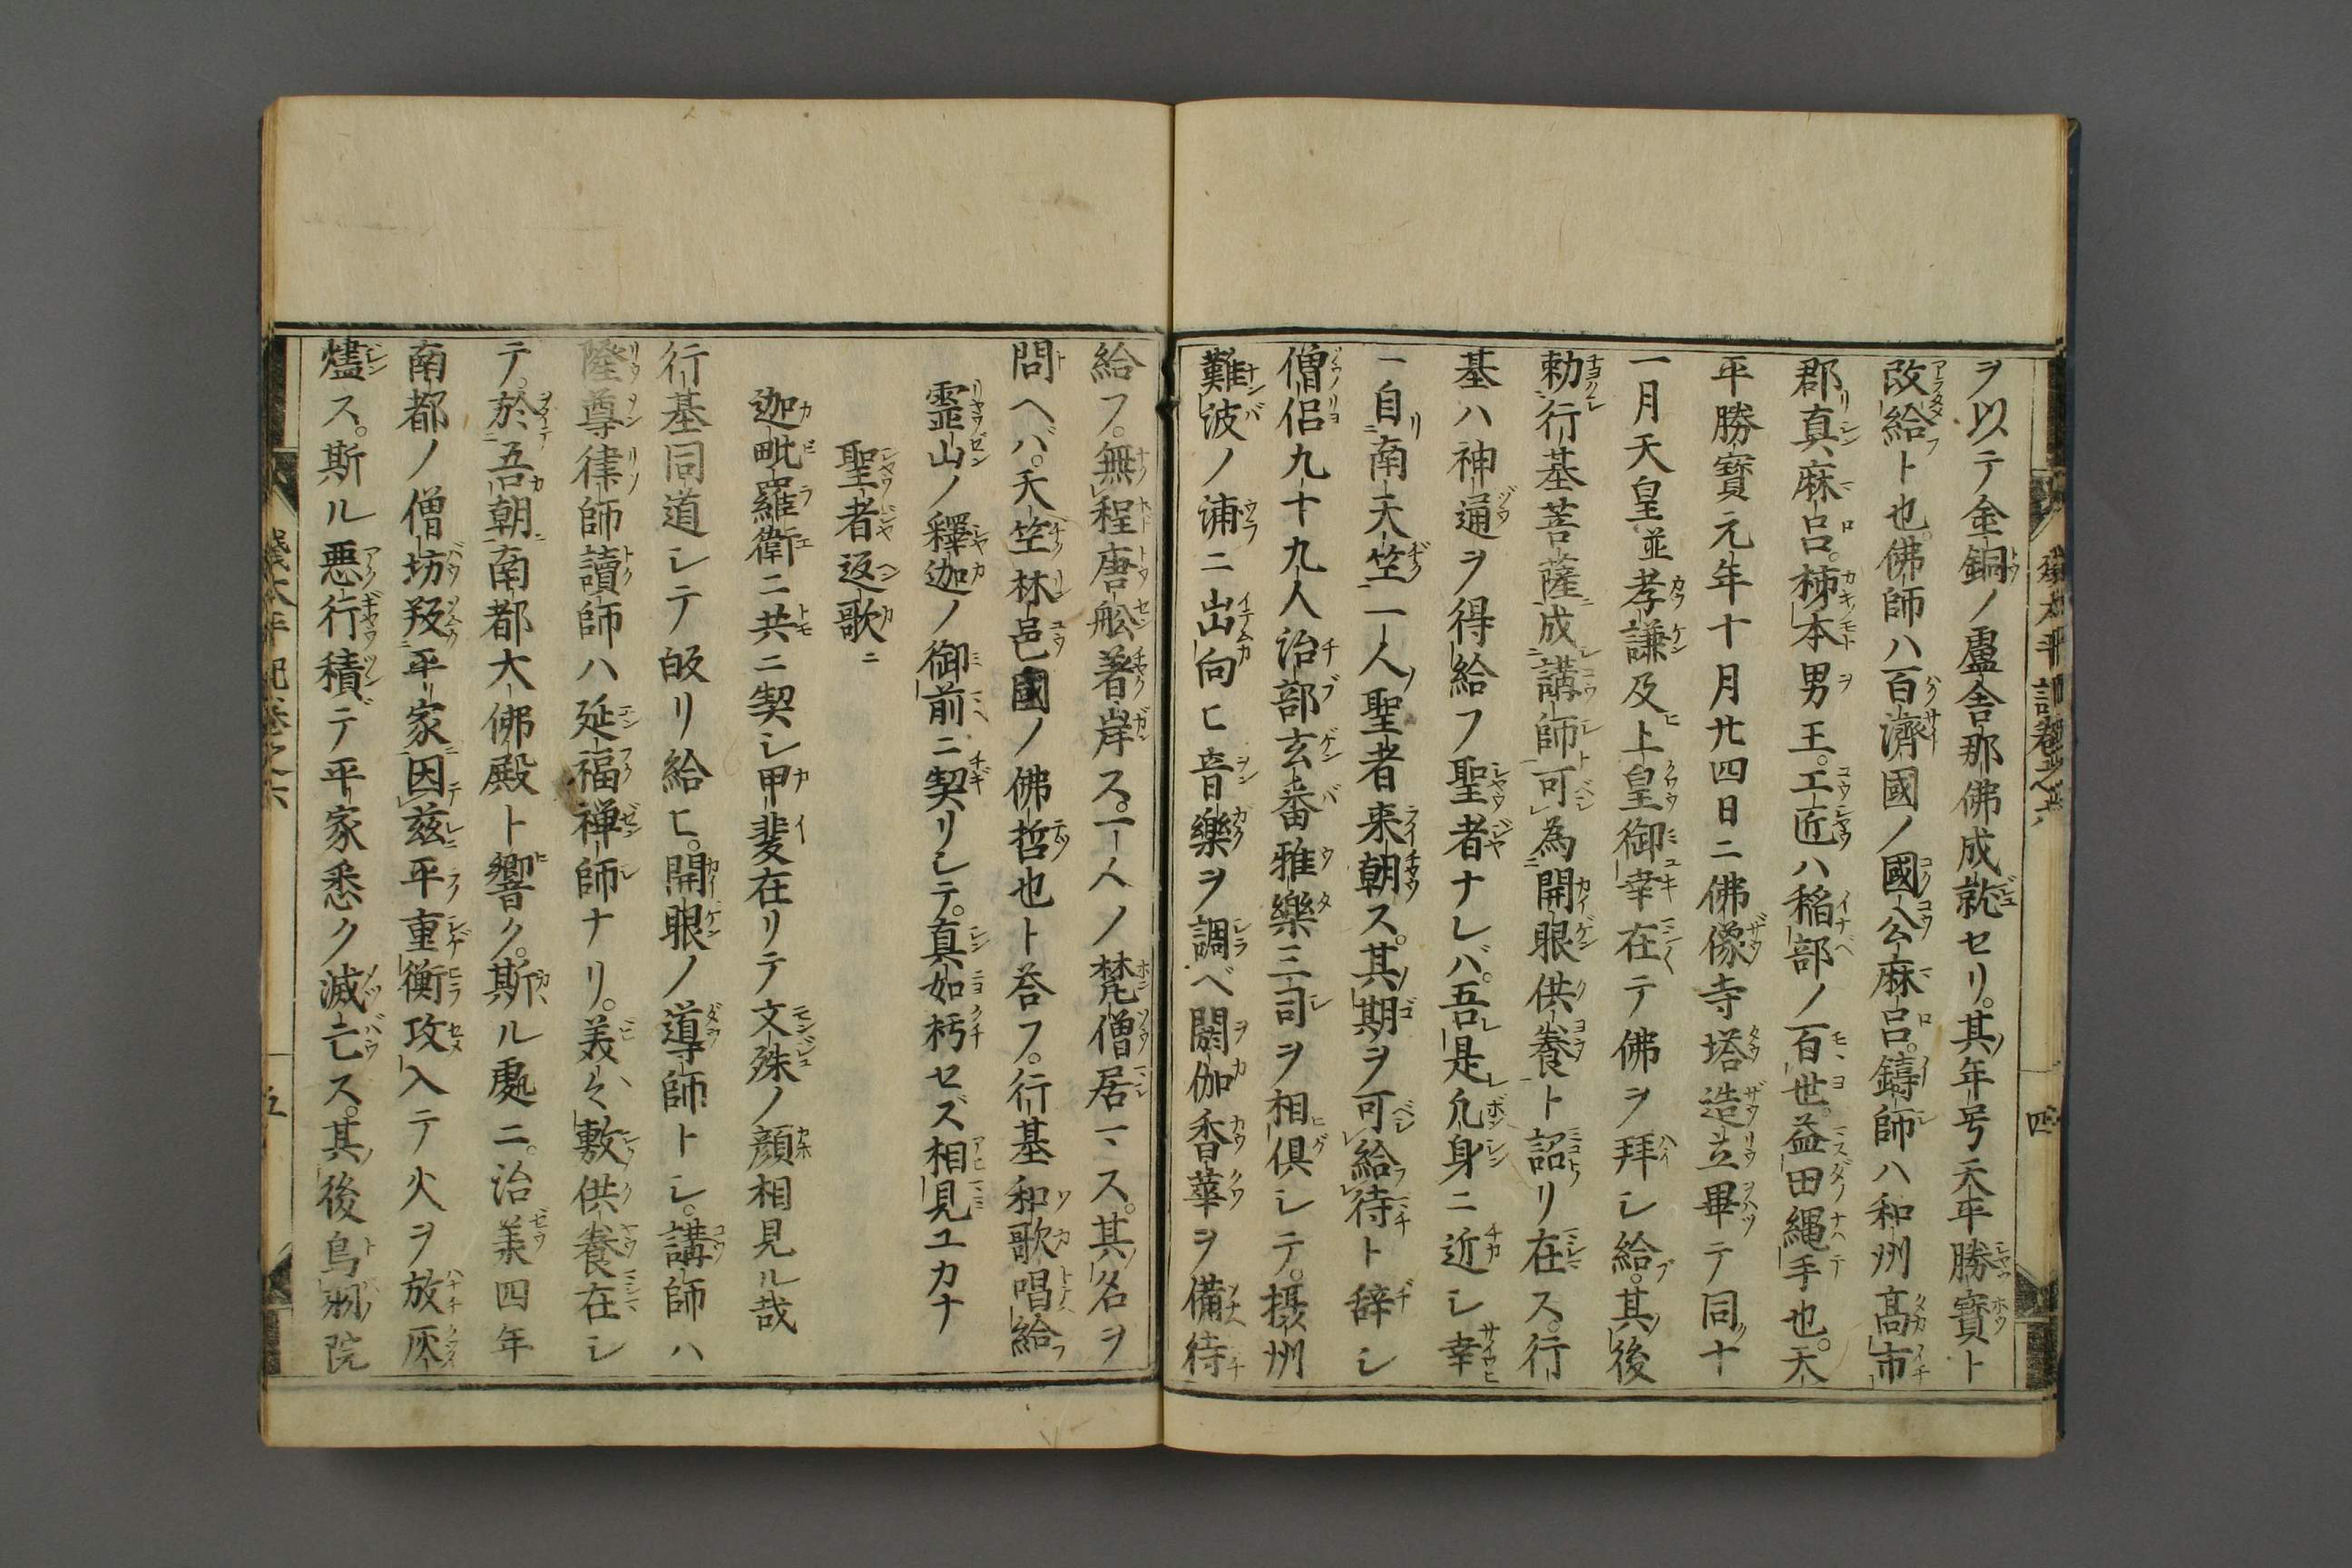 ヲ以テ金銅ノ盧舎那佛成就セリ。其年号天平勝寳ト
改給ト也。佛師ハ百濟國ノ國公麻呂。鑄師ハ和州髙市
郡真麻呂。柿本男王。工匠ハ稲部ノ百世。益田縄手也。天
平勝寳元年十月廿四日ニ佛像寺塔造立畢テ同十
一月天皇並孝謙及上皇御幸在テ佛ヲ拜シ給。其後
勅行基菩薩成講師可為開眼供養ト詔リ在ス。行
基ハ神通ヲ得給フ聖者ナレバ。吾是凢身ニ近シ幸
一自南天竺一人聖者来朝ス。其期ヲ可給待ト辞シ
僧侶九十九人治部玄番雅樂三司ヲ相俱シテ。摂州
難波ノ浦ニ出向ヒ音樂ヲ調ベ閼伽香華ヲ備待
給フ。無程唐舩著岸ス。一人ノ梵僧居マス。其名ヲ
問ヘバ。天竺林邑國ノ佛哲也ト荅フ。行基和歌唱給
霊山ノ釋迦ノ御前ニ契リシテ。真如朽セズ相見ユカナ
聖者返歌ニ
迦毗羅衛ニ共ニ契シ甲斐在リテ文殊ノ顔相見ル哉
行基同道シテ皈リ給ヒ。開眼ノ導師トシ。講師ハ
隆尊律師讀師ハ延福禅師ナリ。美々敷供養在シ
テ。於吾朝南都大佛殿ト響ク。斯ル處ニ。治羕四年
南都ノ僧坊平家因茲平重衡攻入テ火ヲ放灰
燼ス。斯ル悪行積テ平家悉ク滅亡ス。其後鳥羽院
太平記卷之六
四
太平記卷之六
五